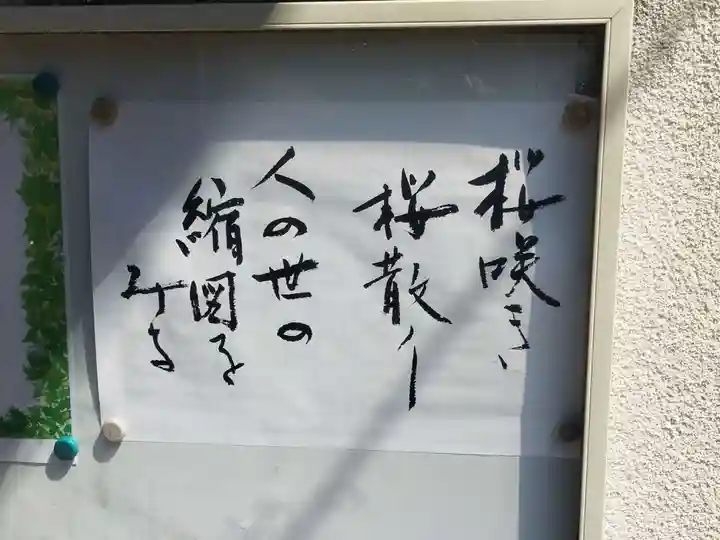 桜咲き、
桜散りし
人の世の
縮図を
みる